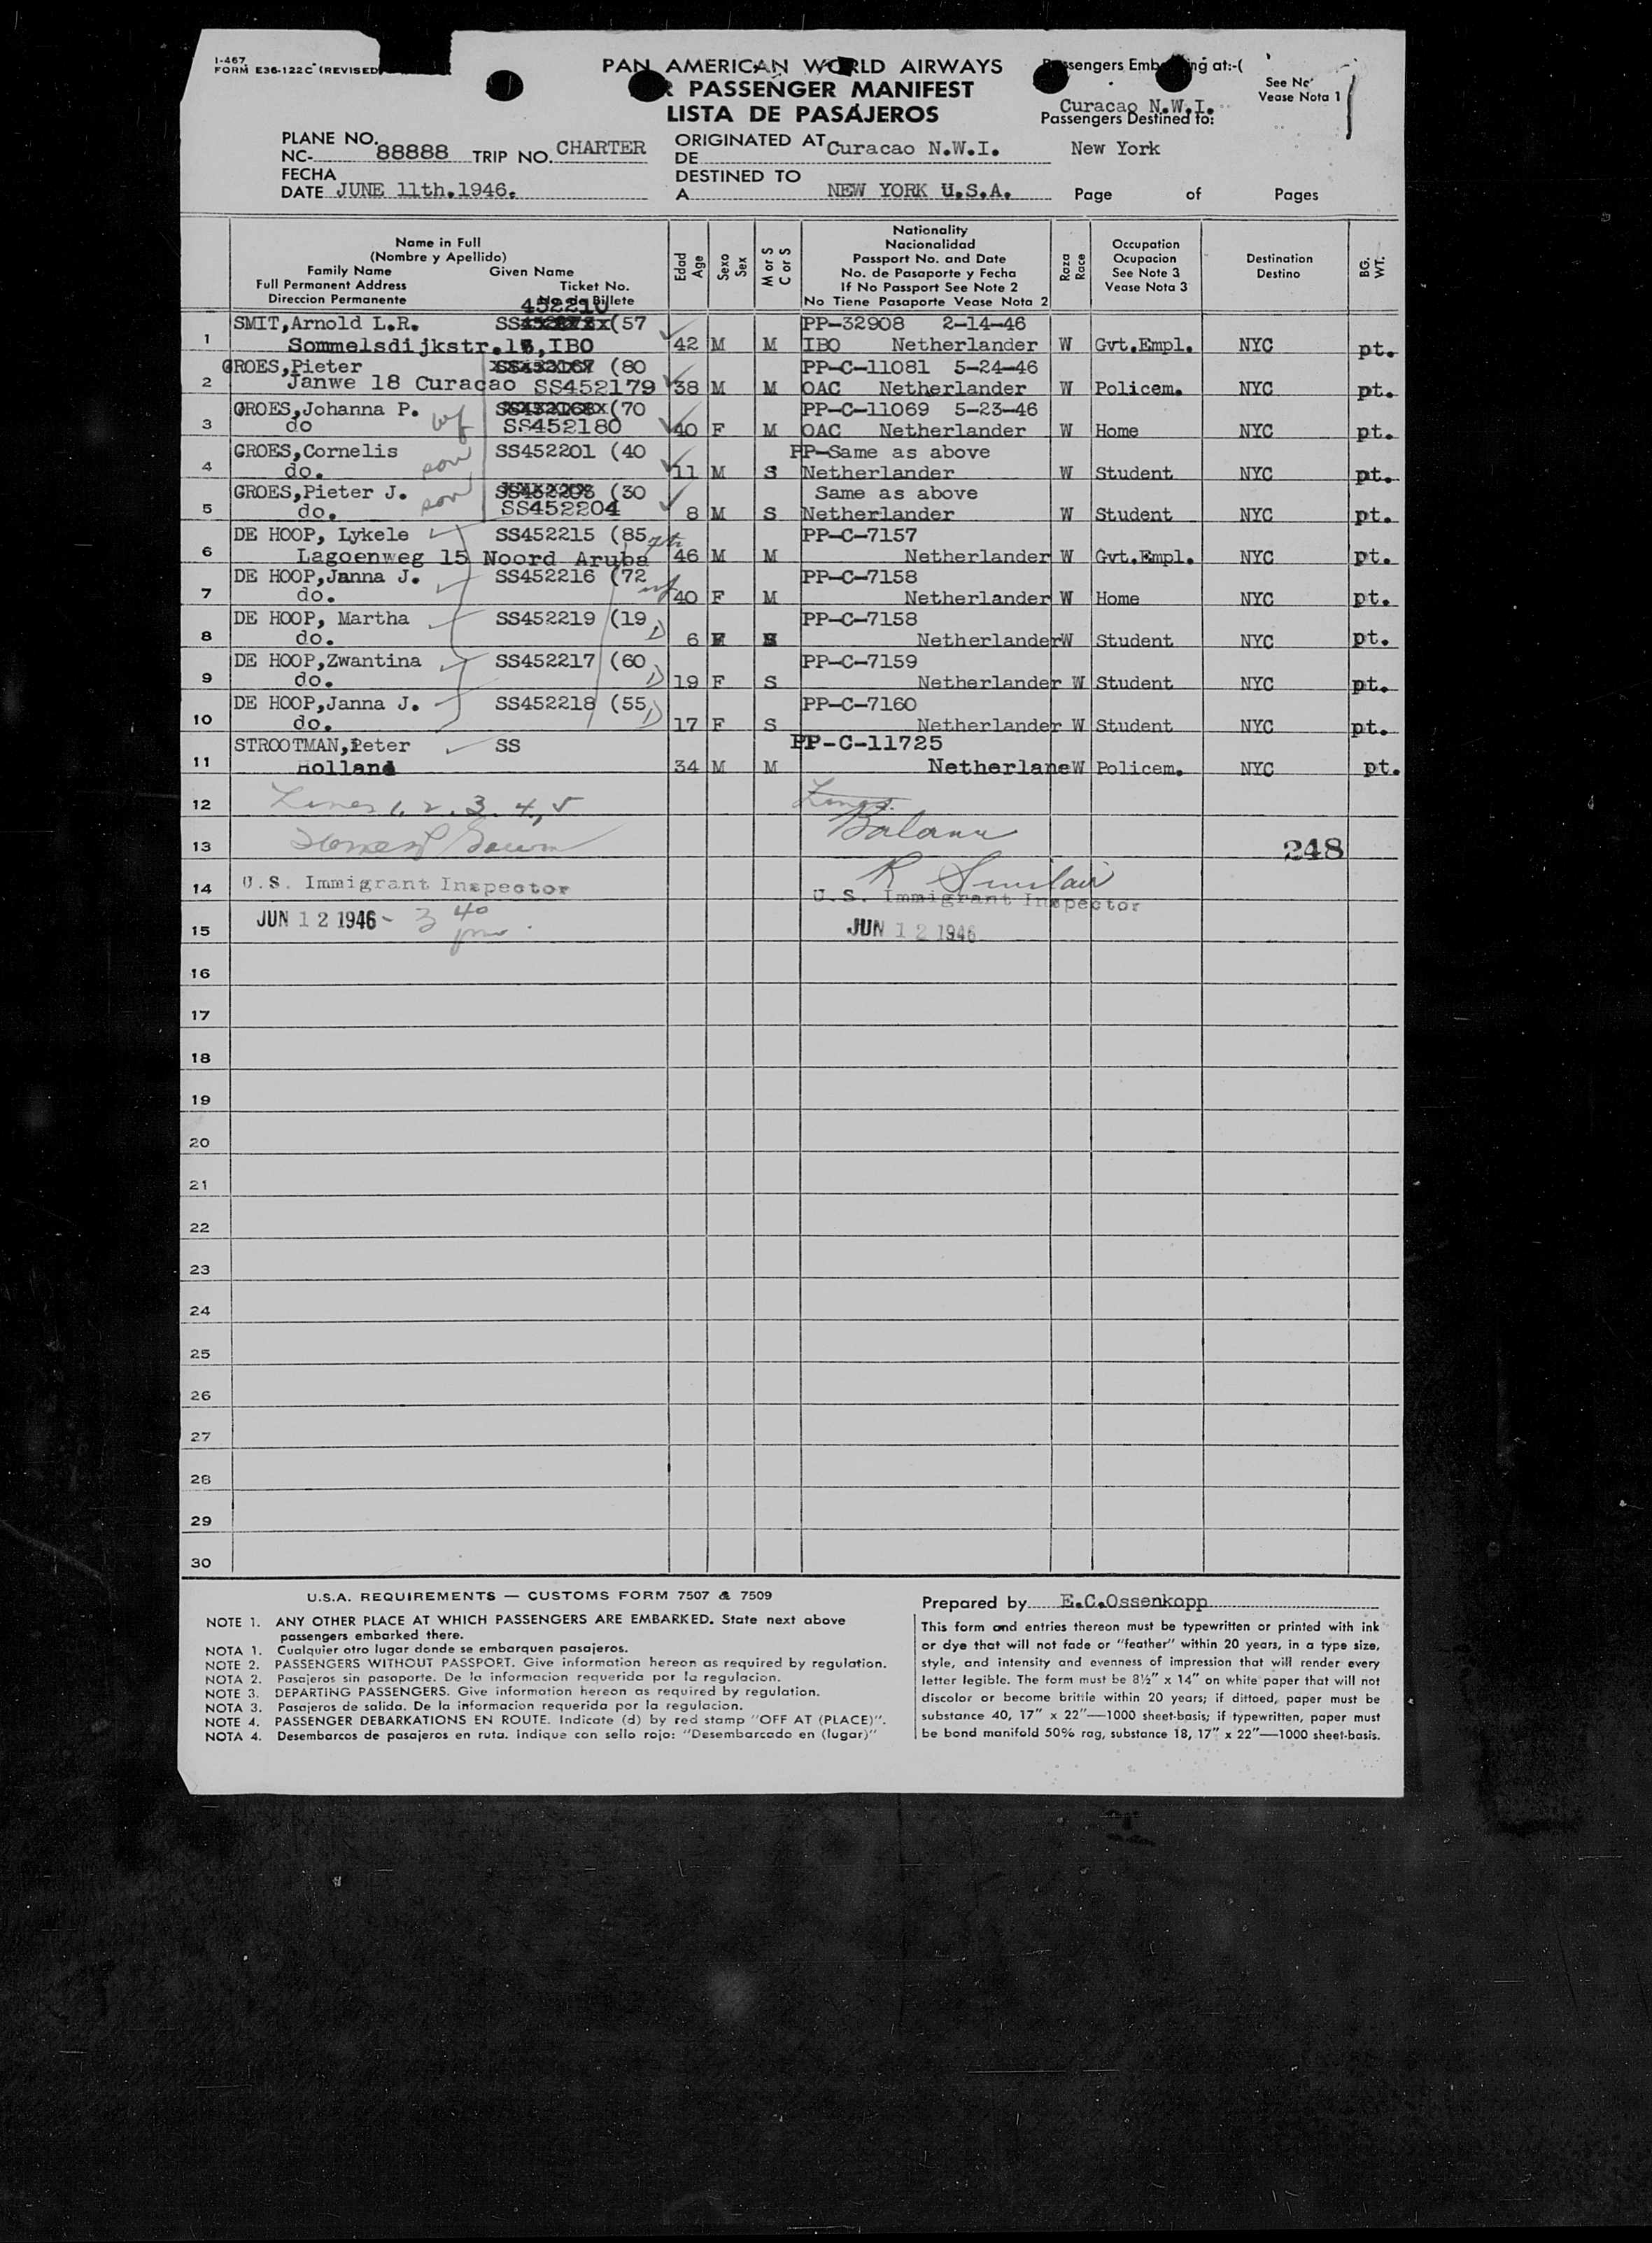 I-467
FORM E36-122C (REVISED
PAN AMERICAN WORLD AIRWAYS
PASSENGER MANIFEST
LISTA DE PASAJEROS
Passengers Embarking at:-(
See No
Vease Nota 1
Curacao N.W.I.
Passengers Destined to:
New York
PLANE NO.
NC- 88888 TRIP NO. CHARTER
ORIGINATED AT Curacao N.W.I.
DE
FECHA
DATE JUNE 11th.1946.
DESTINED TO
A NEW YORK U.S.A.
Page of Pages
Name in Full
(Nombre y Apellido)
Family Name Given Name
Full Permanent Address Ticket No.
Direccion Permanente No. de Billete
Edad Age
Sexo Sex
M or S C or S
Nationality
Nacionalidad
Passport No. and Date
No. de Pasaporte y Fecha
If No Passport See Note 2
No Tiene Pasaporte Vease Nota 2
Raza Race
Occupation
Ocupacion
See Note 3
Vease Nota 3
Destination
Destino
BG. WT.
452210
SMIT,Arnold L.R. SS (57 PP-32908 2-14-46
1 Sommelsdijkstr. ,IBO 42 M M IBO Netherlander W Gvt.Empl. NYC pt.
GROES,Pieter (80 PP-C-11081 5-24-46
2 Janwe 18 Curacao SS452179 38 M M OAC Netherlander W Policem. NYC pt.
GROES,Johanna P. wf (70 PP-C-11069 5-23-46
3 do SS452180 40 F M OAC Netherlander W Home NYC pt.
GROES,Cornelis son SS452201 (40 PP-Same as above
4 do. 11 M S Netherlander W Student NYC pt.
GROES,Pieter J. son (30 Same as above
5 do. SS452204 8 M S Netherlander W Student NYC pt.
DE HOOP, Lykele SS452215 (85 PP-C-7157
6 Lagoenweg 15 Noord Aruba 46 M M Netherlander W Gvt.Empl. NYC pt.
DE HOOP,Janna J. SS452216 (72 wf PP-C-7158
7 do. 40 F M Netherlander W Home NYC pt.
DE HOOP, Martha SS452219 (19 D PP-C-7158
8 do. 6 F S Netherlander W Student NYC pt.
DE HOOP,Zwantina SS452217 (60 D PP-C-7159
9 do. 19 F S Netherlander W Student NYC pt.
DE HOOP,Janna J. SS452218 (55 D PP-C-7160
10 do. 17 F S Netherlander W Student NYC pt.
STROOTMAN,Peter SS PP-C-11725
11 Holland 34 M M Netherlane W Policem. NYC pt.
12 Lines 1, 2, 3, 4, 5 Lines
13 Balance 248
R Sinclair
14 U.S. Immigrant Inspector U.S. Immigrant Inspector
15 JUN 12 1946 - 3 40 pm. JUN 12 1946
16
17
18
19
20
21
22
23
24
25
26
27
28
29
30
U.S.A. REQUIREMENTS — CUSTOMS FORM 7507 & 7509
NOTE 1. ANY OTHER PLACE AT WHICH PASSENGERS ARE EMBARKED. State next above
passengers embarked there.
NOTA 1. Cualquier otro lugar donde se embarquen pasajeros.
NOTE 2. PASSENGERS WITHOUT PASSPORT. Give information hereon as required by regulation.
NOTA 2. Pasajeros sin pasaporte. De la informacion requerida por la regulacion.
NOTE 3. DEPARTING PASSENGERS. Give information hereon as required by regulation.
NOTA 3. Pasajeros de salida. De la informacion requerida por la regulacion.
NOTE 4. PASSENGER DEBARKATIONS EN ROUTE. Indicate (d) by red stamp "OFF AT (PLACE)".
NOTA 4. Desembarcos de pasajeros en ruta. Indique con sello rojo: "Desembarcado en (lugar)"
Prepared by E.C.Ossenkopp
This form and entries thereon must be typewritten or printed with ink
or dye that will not fade or "feather" within 20 years, in a type size,
style, and intensity and evenness of impression that will render every
letter legible. The form must be 8½" x 14" on white paper that will not
discolor or become brittle within 20 years; if dittoed, paper must be
substance 40, 17" x 22"—1000 sheet-basis; if typewritten, paper must
be bond manifold 50% rag, substance 18, 17" x 22"—1000 sheet-basis.